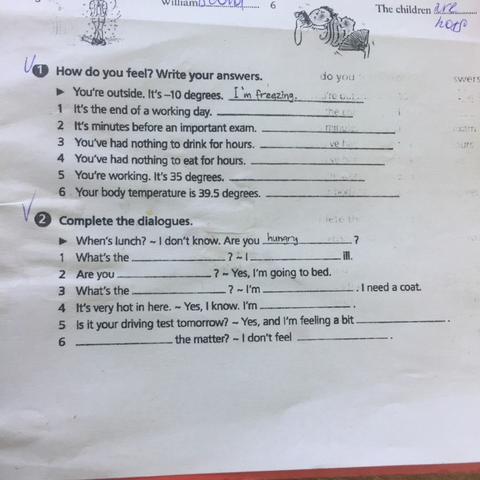 William
6
The children are
hots
1 How do you feel? Write your answers.
► You're outside. It's –10 degrees. I'm freezing.
1 It's the end of a working day.
2 It's minutes before an important exam.
3 You've had nothing to drink for hours.
4 You've had nothing to eat for hours.
5 You're working. It's 35 degrees.
6 Your body temperature is 39.5 degrees.
2 Complete the dialogues.
► When's lunch? ~ I don't know. Are you hungry ?
1 What's the ? ~ I ill.
2 Are you ? ~ Yes, I'm going to bed.
3 What's the ? ~ I'm . I need a coat.
4 It's very hot in here. ~ Yes, I know. I'm .
5 Is it your driving test tomorrow? ~ Yes, and I'm feeling a bit .
6 the matter? ~ I don't feel .